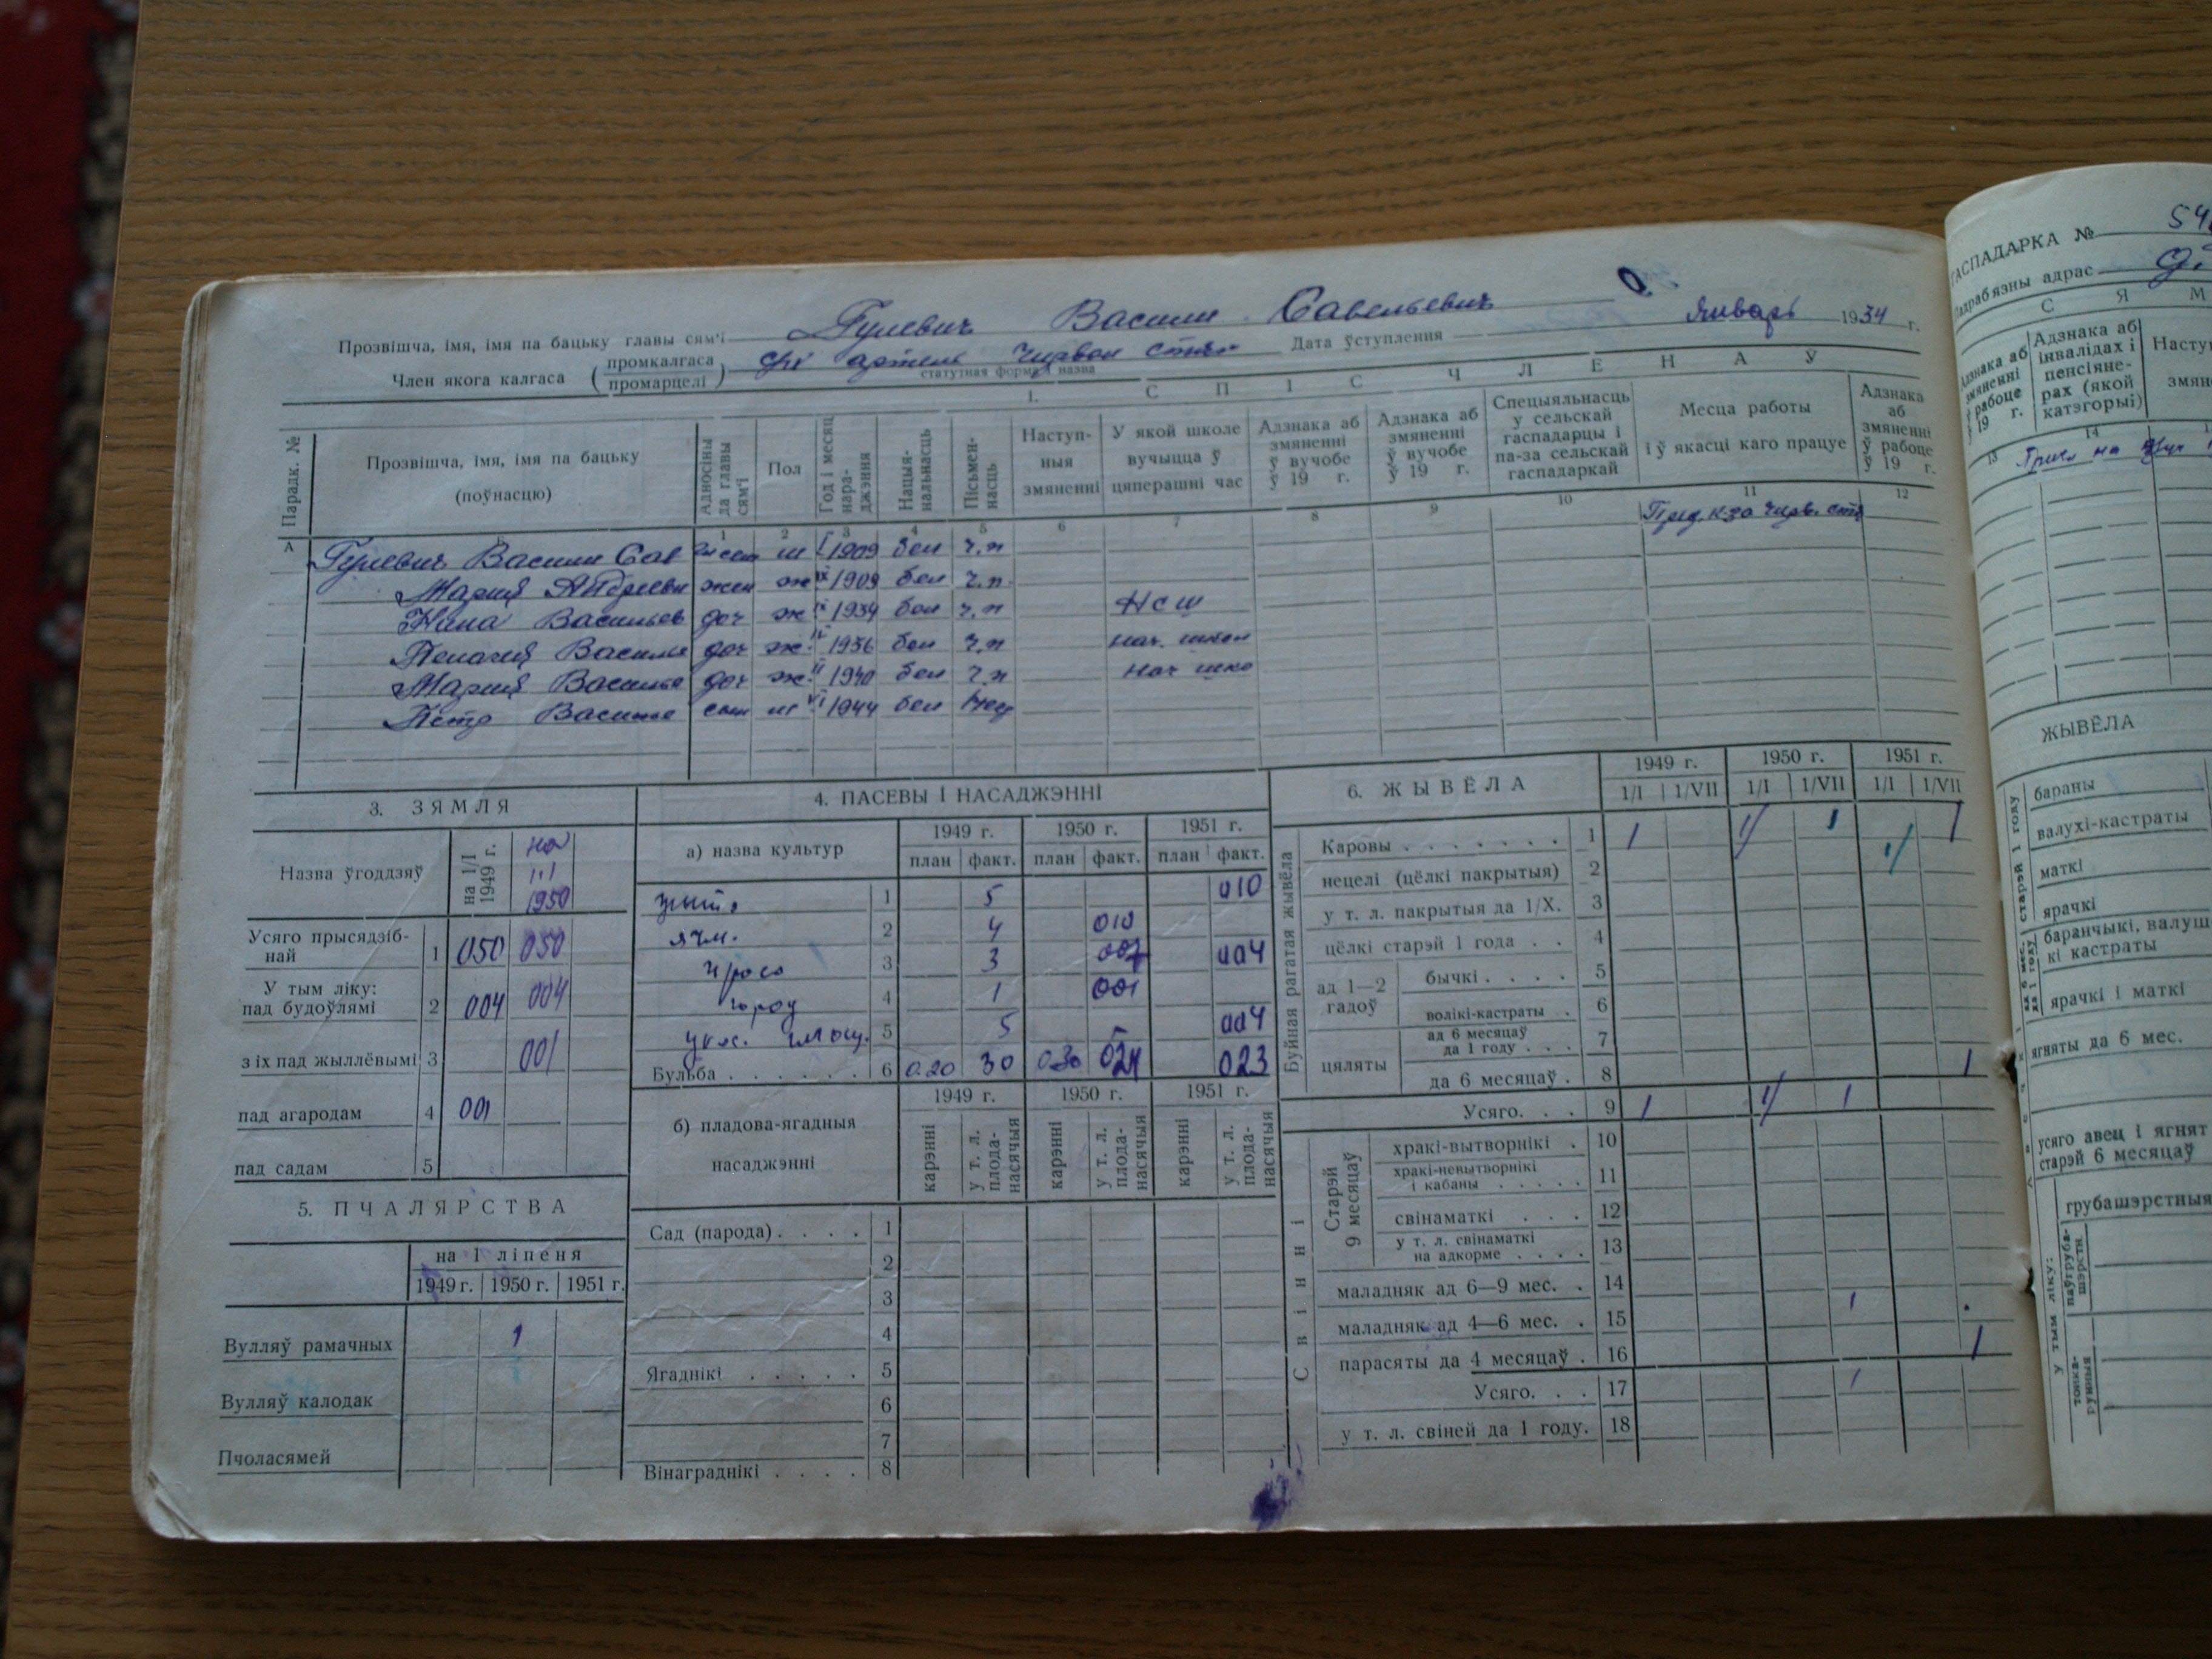 Прозвішча, імя, імя па бацьку главы сям'і Гулевич Васили Савельевич
Член якога калгаса (промкалгаса промарцелі) с/х артель Чирвон Стяг Дата ўступлення Январь 1934 г.
статутная форма, назва
I. СПІС ЧЛЕНАЎ
Парадк. № Прозвішча, імя, імя па бацьку (поўнасцю) Адносіны да главы сям'і Пол Год і месяц нараджэння Нацыянальнасць Пісьменнасць Наступныя змяненні У якой школе вучыцца ў цяперашні час Адзнака аб змяненні ў вучобе ў 19 г. Адзнака аб змяненні ў вучобе ў 19 г. Спецыяльнасць у сельскай гаспадарцы і па-за сельскай гаспадаркай Месца работы і ў якасці каго працуе Адзнака аб змяненні ў рабоце ў 19 г.
А 1 2 3 4 5 6 7 8 9 10 11 12
Гулевич Васили Сав м I 1909 бел ч.п Пред. к-за Чирв. стя
Мария Андреевн жен ж 1909 бел ч.п.
Нина Васильев доч ж 1934 бел ч.п НСШ
Пелагия Василье доч ж 1936 бел ч.п нач. школ
Мария Василье доч ж II 1940 бел ч.п нач шко
Петр Василье сын м VI 1944 бел
3. ЗЯМЛЯ
Назва ўгоддзяў на 1/I 1949 г. на 1/I 1950
Усяго прысядзібнай 1 050 050
У тым ліку: пад будоўлямі 2 004 004
з іх пад жыллёвымі 3 001
пад агародам 4 001
пад садам 5
5. ПЧАЛЯРСТВА
на 1 ліпеня
1949 г. 1950 г. 1951 г.
Вулляў рамачных 1
Вулляў калодак
Пчоласямей
4. ПАСЕВЫ І НАСАДЖЭННІ
а) назва культур 1949 г. 1950 г. 1951 г.
план факт. план факт. план факт.
1 5 010
ячм. 2 4 010
просо 3 3 004
город 4 1 001
5 5 004
Бульба 6 0.20 30 0.30 023
б) пладова-ягадныя насаджэнні 1949 г. 1950 г. 1951 г.
карэнні у т. л. плоданасячыя карэнні у т. л. плоданасячыя карэнні у т. л. плоданасячыя
Сад (парода) 1
2
3
4
Ягаднікі 5
6
7
Вінаграднікі 8
6. ЖЫВЁЛА
1949 г. 1950 г. 1951 г.
1/I 1/VII 1/I 1/VII 1/I 1/VII
Буйная рагатая жывёла
Каровы 1 1 1 1 1 1
нецелі (цёлкі пакрытыя) 2
у т. л. пакрытыя да 1/X. 3
цёлкі старэй 1 года 4
ад 1—2 гадоў бычкі 5
волікі-кастраты 6
цяляты ад 6 месяцаў да 1 году 7
да 6 месяцаў 8 1
Усяго 9 1 1 1
Свінні
Старэй 9 месяцаў
хракі-вытворнікі 10
хракі-невытворнікі і кабаны 11
свінаматкі 12
у т. л. свінаматкі на адкорме 13
маладняк ад 6—9 мес. 14
маладняк ад 4—6 мес. 15 1
парасяты да 4 месяцаў 16 1
Усяго 17 1
у т. л. свіней да 1 году. 18
ГАСПАДАРКА №
Падрабязны адрас
СЯМ
Адзнака аб змяненні ў рабоце ў 19 г. Адзнака аб інвалідах і пенсіянерах (якой катэгорыі)
13 14
ЖЫВЁЛА
старэй 1 году
бараны
валухі-кастраты
маткі
ярачкі
ад 6 мес. да 1 году
баранчыкі, валуш
кі кастраты
ярачкі і маткі
ягняты да 6 мес.
усяго авец і ягнят
старэй 6 месяцаў
у тым ліку:
грубашэрстныя
паўгрубашэрстн.
тонкарунныя